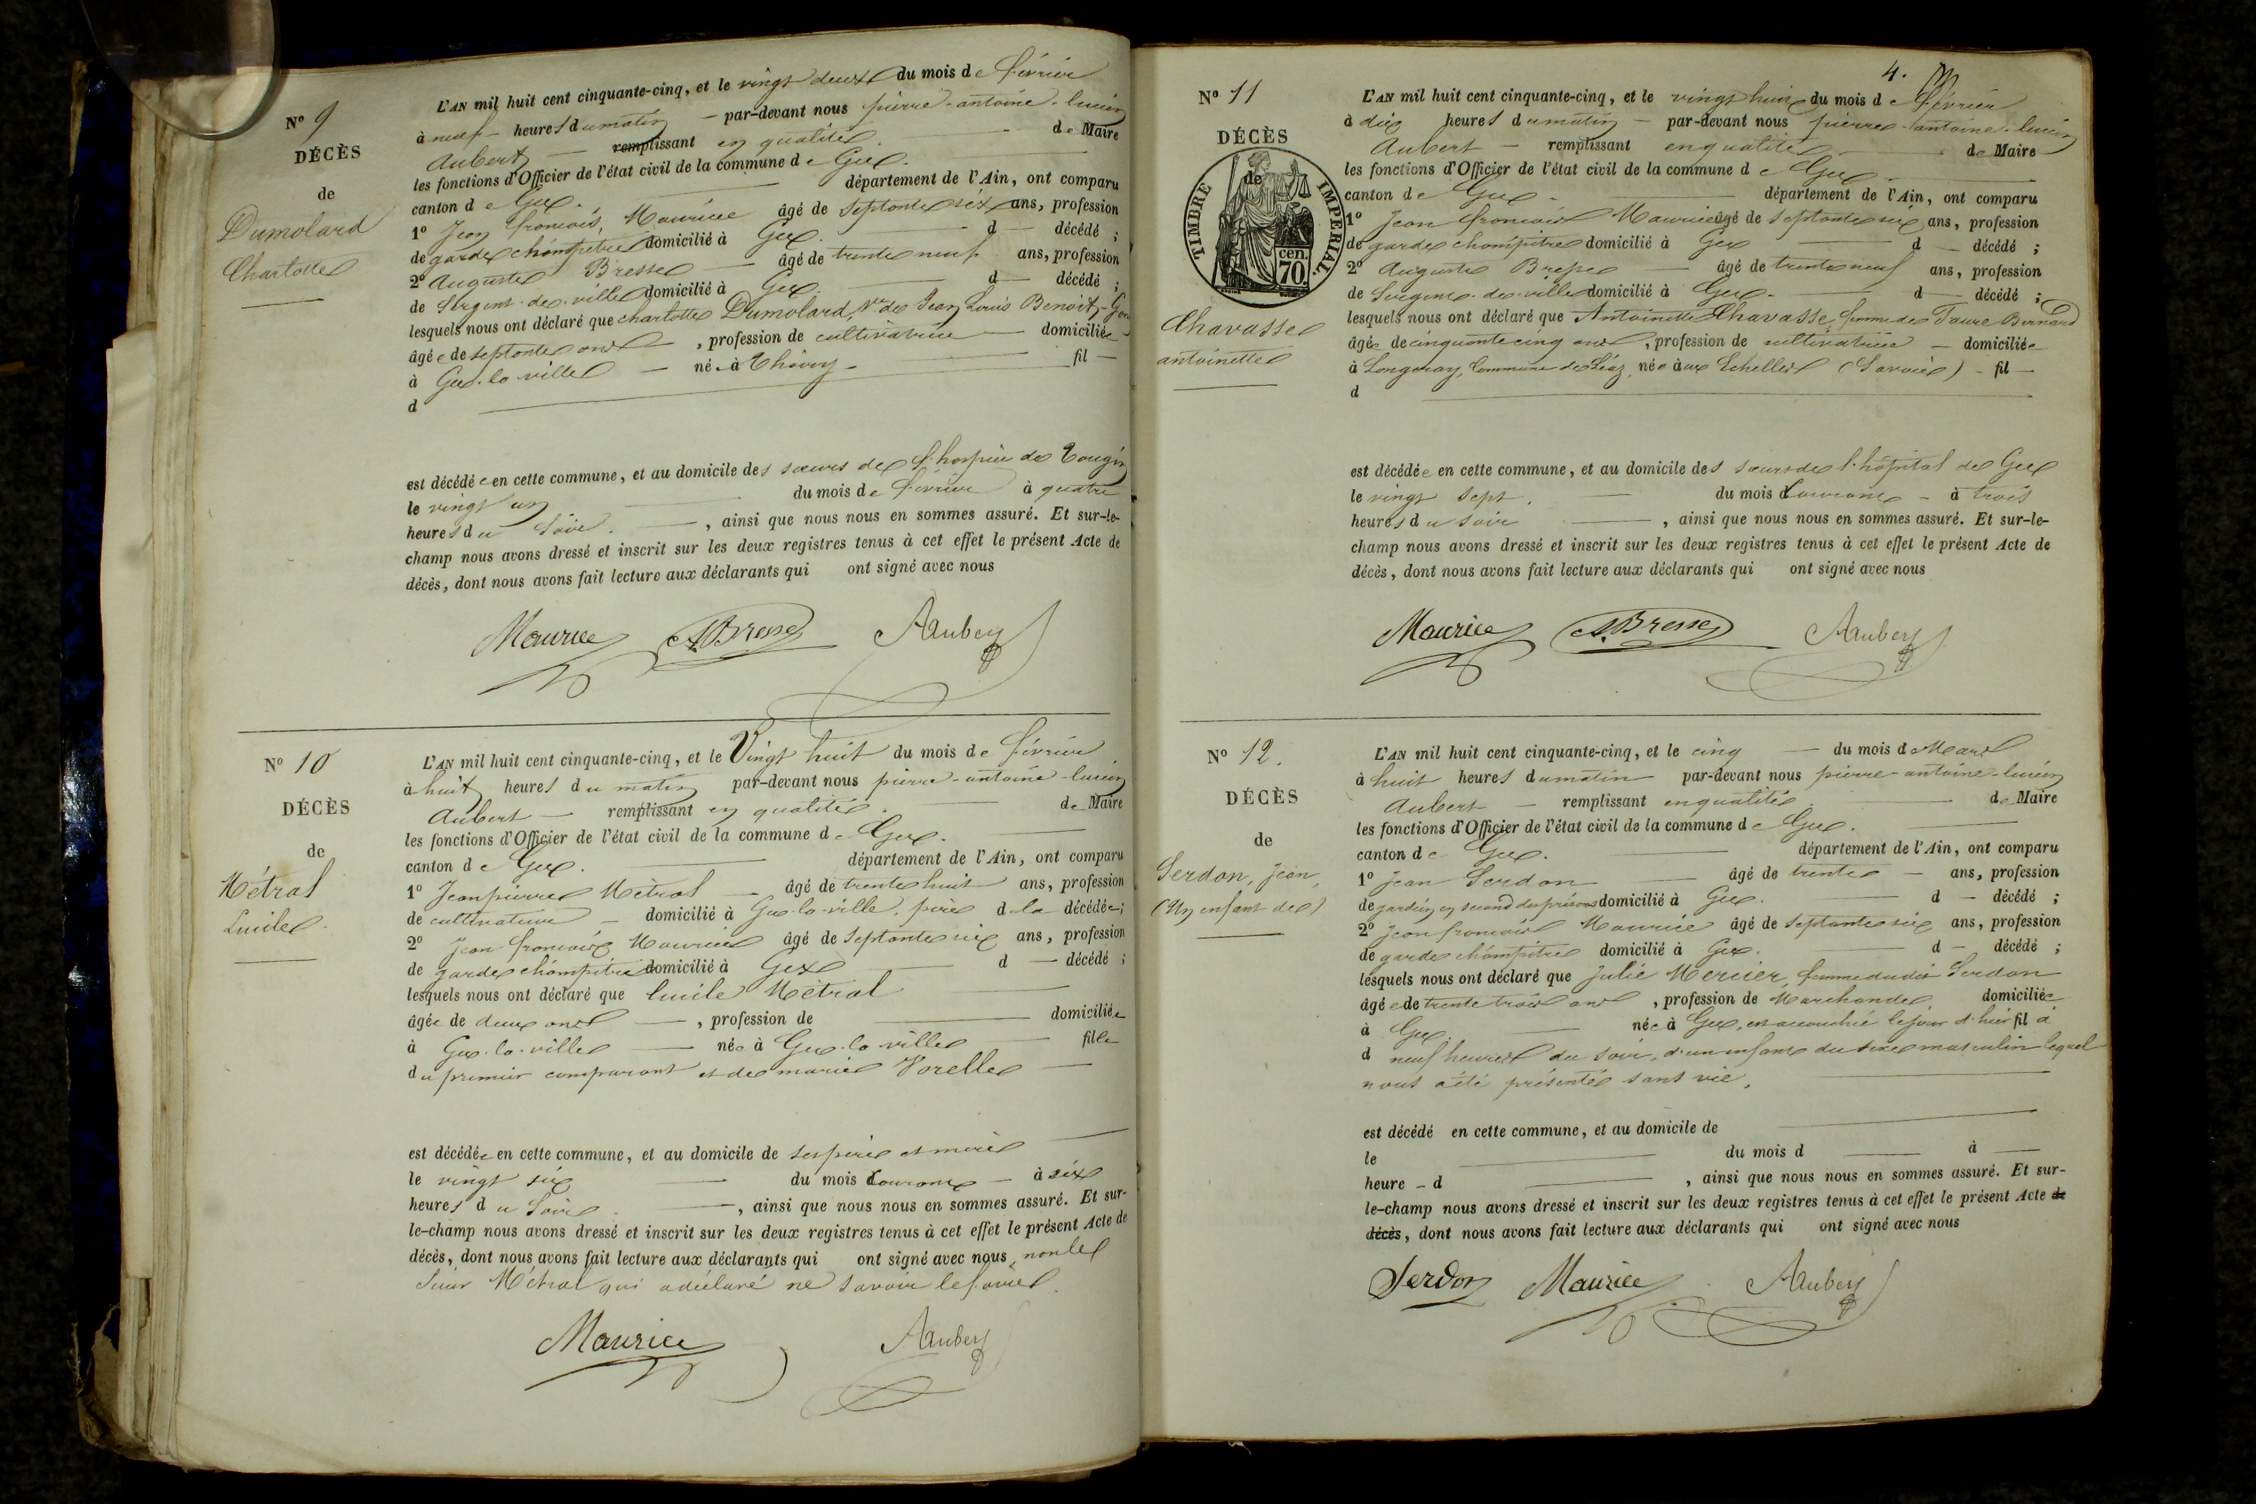 N° 9
DÉCÈS
de
Dumolard
Charlotte
L'AN mil huit cent cinquante-cinq, et le vingt deux du mois de février
à neuf heures du matin par-devant nous pierre-antoine-lucien
Aubert remplissant en qualité de Maire
les fonctions d'Officier de l'état civil de la commune de Gex.
canton de Gex. département de l'Ain, ont comparu
1° Jean françois Maurice âgé de septante six ans, profession
de garde champêtre domicilié à Gex. d décédé ;
2° Auguste Bresse âgé de trente neuf ans, profession
de Sergent de ville domicilié à Gex. d décédé ;
lesquels nous ont déclaré que charlotte Dumolard, Ve de Jean Louis Benoit-Gon
âgée de septante ans, profession de cultivatrice domiciliée
à Gex-la-ville née à Thoiry fil
d
est décédée en cette commune, et au domicile des sœurs de l'hospice de Tougin
le vingt un du mois de février à quatre
heures du Soir. , ainsi que nous nous en sommes assuré. Et sur-le-
champ nous avons dressé et inscrit sur les deux registres tenus à cet effet le présent Acte de
décès, dont nous avons fait lecture aux déclarants qui ont signé avec nous
Maurice ABresse Aubert
N° 10
DÉCÈS
de
Métral
Lucile
L'AN mil huit cent cinquante-cinq, et le Vingt huit du mois de février
à huit heures du matin par-devant nous pierre-antoine-lucien
Aubert remplissant en qualité de Maire
les fonctions d'Officier de l'état civil de la commune de Gex.
canton de Gex. département de l'Ain, ont comparu
1° Jean pierre Métral âgé de trente huit ans, profession
de cultivateur domicilié à Gex-la-ville, père de la décédée ;
2° Jean françois Maurice âgé de septante six ans, profession
de garde champêtre domicilié à Gex d décédé ;
lesquels nous ont déclaré que lucile Métral
âgée de deux ans , profession de domiciliée
à Gex-la-ville née à Gex-la-ville fille
du premier comparant et de marie Vorelle
est décédée en cette commune, et au domicile de ses père et mère
le vingt six du mois courant à six
heures du Soir , ainsi que nous nous en sommes assuré. Et sur-
le-champ nous avons dressé et inscrit sur les deux registres tenus à cet effet le présent Acte de
décès, dont nous avons fait lecture aux déclarants qui ont signé avec nous, non le
Sieur Métral qui a déclaré ne savoir le faire.
Maurice Aubert
4.
N° 11
DÉCÈS
de
TIMBRE IMPERIAL.
cen. 70.
Chavasse
antoinette
L'AN mil huit cent cinquante-cinq, et le vingt huit du mois de février
à dix heures du matin par-devant nous pierre-antoine-lucien
Aubert remplissant en qualité de Maire
les fonctions d'Officier de l'état civil de la commune de Gex
canton de Gex département de l'Ain, ont comparu
1° Jean françois Maurice âgé de septante six ans, profession
de garde champêtre domicilié à Gex d décédé ;
2° Auguste Bresse âgé de trente neuf ans, profession
de Sergent de ville domicilié à Gex. d décédé ;
lesquels nous ont déclaré que Antoinette Chavasse, femme de Faure Bernard
âgée de cinquante cinq ans, profession de cultivatrice domiciliée
à Longeray, Commune de Léaz, née aux Echelles (Savoie) fil
d
est décédée en cette commune, et au domicile des sœurs de l'hôpital de Gex
le vingt sept. du mois courant à trois
heures du soir , ainsi que nous nous en sommes assuré. Et sur-le-
champ nous avons dressé et inscrit sur les deux registres tenus à cet effet le présent Acte de
décès, dont nous avons fait lecture aux déclarants qui ont signé avec nous
Maurice ABresse Aubert
N° 12.
DÉCÈS
de
Serdon, Jean,
(Un enfant de)
L'AN mil huit cent cinquante-cinq, et le cinq du mois de Mars
à huit heures du matin par-devant nous pierre-antoine-lucien
Aubert remplissant en qualité de Maire
les fonctions d'Officier de l'état civil de la commune de Gex.
canton de Gex. département de l'Ain, ont comparu
1° Jean Serdon âgé de trente ans, profession
de gardien en second des prisons domicilié à Gex. d décédé ;
2° Jean françois Maurice âgé de septante six ans, profession
de garde champêtre domicilié à Gex. d décédé ;
lesquels nous ont déclaré que Julie Mercier, femme dudit Serdon
âgée de trente trois ans , profession de Marchande domiciliée
à Gex. née à Gex, est accouchée le jour d'hier fil à
d neuf heures du soir, d'un enfant du sexe masculin lequel
nous a été présenté sans vie.
est décédé en cette commune, et au domicile de
le du mois d à
heure d , ainsi que nous nous en sommes assuré. Et sur-
le-champ nous avons dressé et inscrit sur les deux registres tenus à cet effet le présent Acte de
décès, dont nous avons fait lecture aux déclarants qui ont signé avec nous
Serdon Maurice Aubert